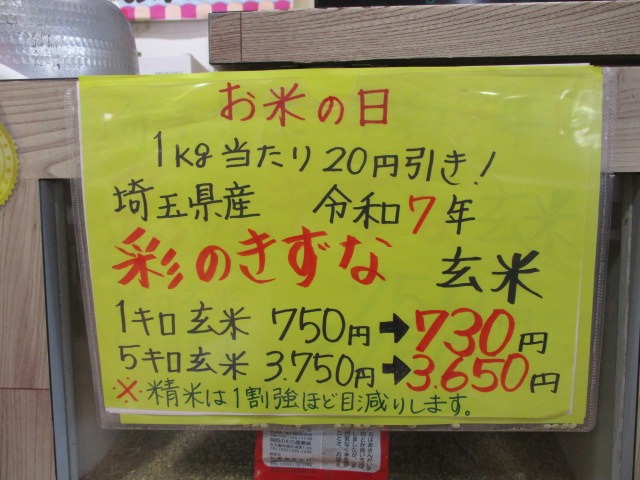 お米の日
1kg当たり20円引き!
埼玉県産 令和7年
彩のきずな 玄米
1キロ玄米 750円➡730円
5キロ玄米 3.750円➡3.650円
※精米は1割強ほど目減りします。